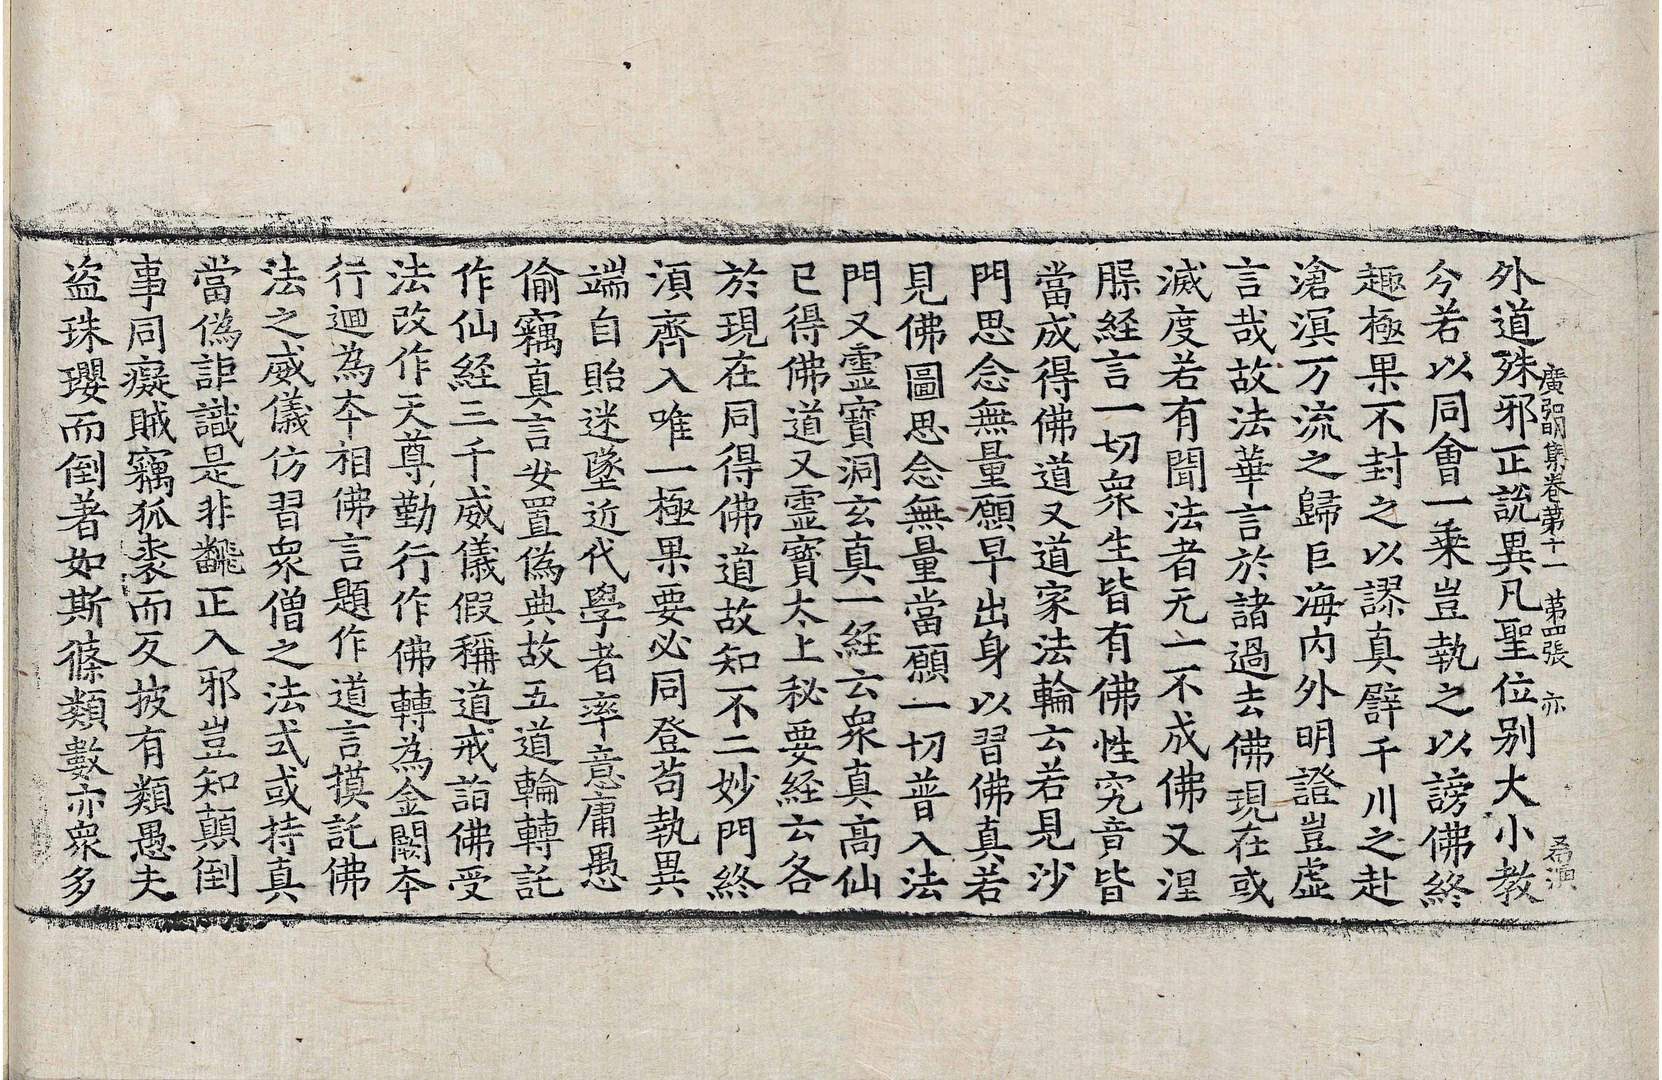 外道殊邪正說異凡聖位别大小教
廣弘明集卷第十一　第四張　亦
今若以同會一乗豈執之以謗佛終
趣極果不封之以謬真譬千川之赴
滄溟万流之歸巨海内外明證豈虚
言哉故法華言於諸過去佛現在或
滅度若有聞法者无一不成佛又涅
經言一切衆生皆有佛性究音皆
當成得佛道又道家法輪云若見沙
門思念無量願早出身以習佛真若
見佛圖思念無量當願一切普入法
門又靈寶洞玄真一經云衆真高仙
已得佛道又靈寶太上秘要経云各
於現在同得佛道故知不二妙門終
湏齊入唯一極果要必同登苟執異
端自貽迷墜近代學者率意庸愚
偷竊真言安置偽典故五道輪轉託
作仙経三千威儀假稱道戒詣佛受
法改作天尊勤行作佛轉為金闕本
行迴為本相佛言題作道言摸託佛
法之威儀仿習衆僧之法式或持真
當偽詎識是非翻正入邪豈知顛倒
事同癡賊竊狐裘而反披有類愚夫
盗珠瓔而倒著如斯條類數亦衆多